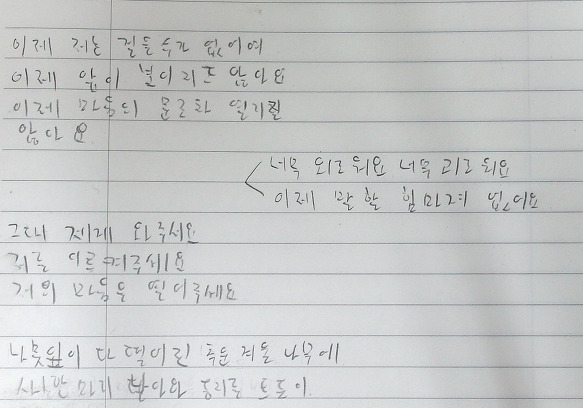 이제 저는 걸을 수가 없어여
이제 앞이 보이지도 않아요
이제 마음의 문조차 열리질
않아요
너무 외로워요 너무 괴로워요
이제 말 할 힘마저 없어요
그대 제게 와주세요
저를 일으켜주세요
저의 마음을 열어주세요
나뭇잎이 다 떨어진 추운 겨울 나무에
한 마리 날아와 둥지를 트듯이